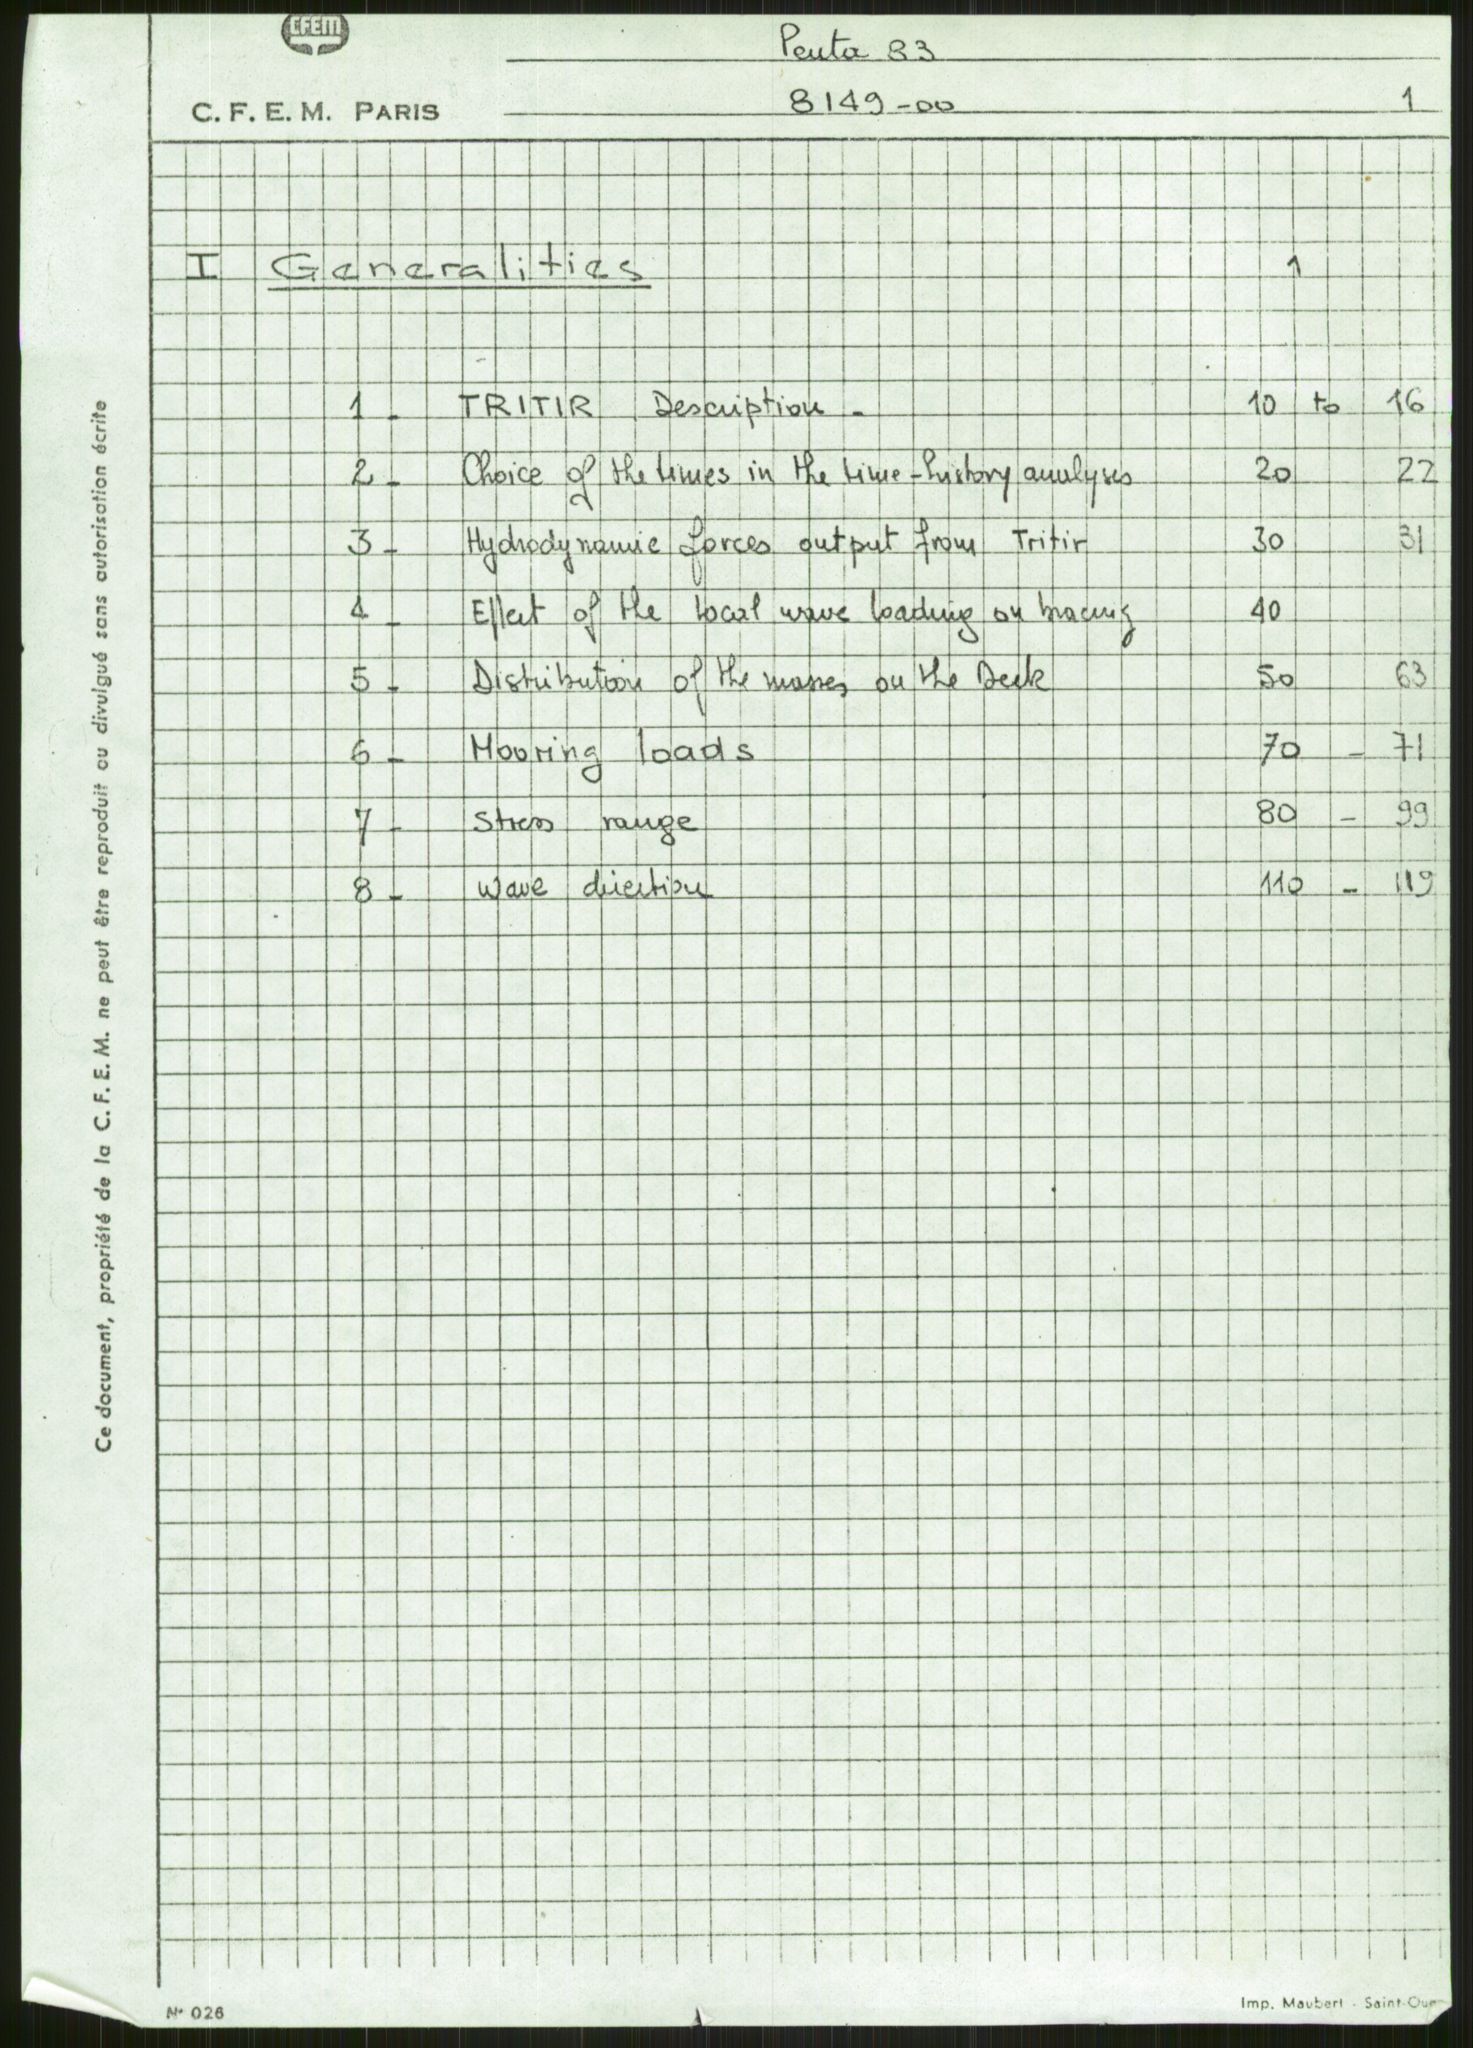 CFEM
Penta 83
C. F. E. M. PARIS 8149-00 1
I Generalities 1
1 - TRITIR Description - 10 to 16
2 - Choice of the times in the time-history analyses 20 22
3 - Hydrodynamic forces output from Tritir 30 31
4 - Effect of the local wave loading on bracing 40
5 - Distribution of the masses on the Deck 50 63
6 - Mooring loads 70 - 71
7 - Stress range 80 - 99
8 - Wave direction 110 - 119
Ce document, propriété de la C. F. E. M. ne peut être reproduit ou divulgué sans autorisation écrite
N° 026
Imp. Maubert - Saint-Oue